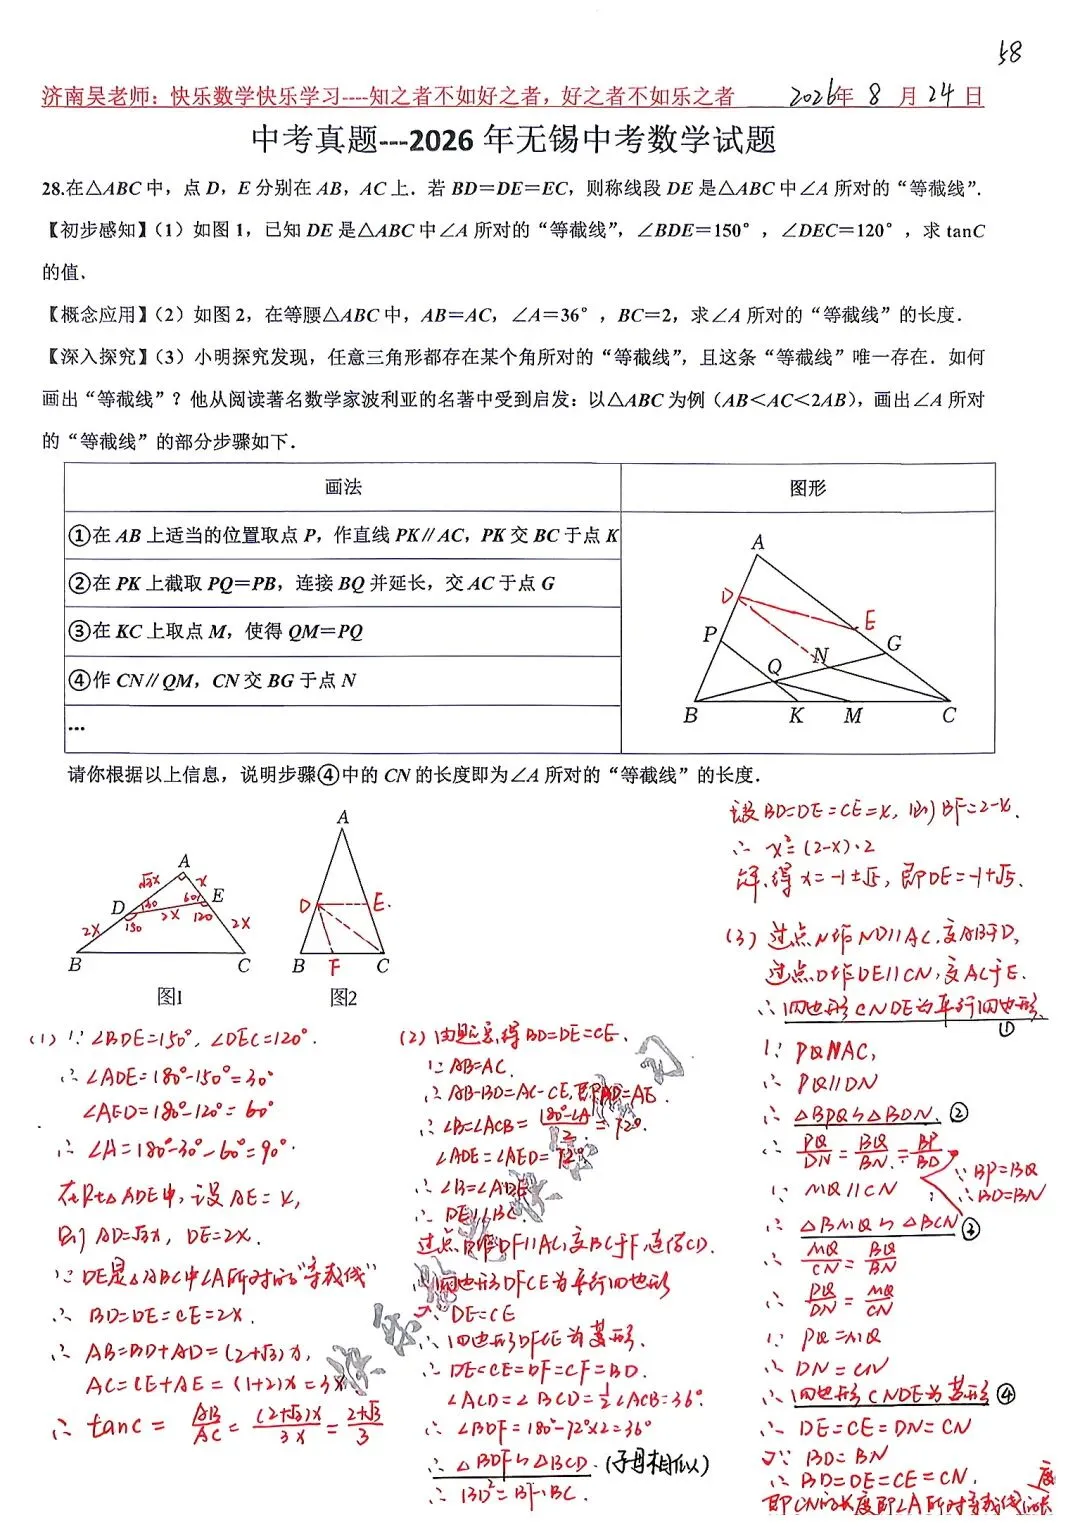 58
济南吴老师：快乐数学快乐学习----知之者不如好之者，好之者不如乐之者 2026年 8 月 24 日
中考真题---2026 年无锡中考数学试题
28.在△ABC 中，点 D，E 分别在 AB，AC 上．若 BD＝DE＝EC，则称线段 DE 是△ABC 中∠A 所对的“等截线”．
【初步感知】（1）如图 1，已知 DE 是△ABC 中∠A 所对的“等截线”，∠BDE＝150°，∠DEC＝120°，求 tanC
的值．
【概念应用】（2）如图 2，在等腰△ABC 中，AB＝AC，∠A＝36°，BC＝2，求∠A 所对的“等截线”的长度．
【深入探究】（3）小明探究发现，任意三角形都存在某个角所对的“等截线”，且这条“等截线”唯一存在．如何
画出“等截线”？他从阅读著名数学家波利亚的名著中受到启发：以△ABC 为例（AB＜AC＜2AB），画出∠A 所对
的“等截线”的部分步骤如下．
画法
图形
①在 AB 上适当的位置取点 P，作直线 PK∥AC，PK 交 BC 于点 K
②在 PK 上截取 PQ＝PB，连接 BQ 并延长，交 AC 于点 G
③在 KC 上取点 M，使得 QM＝PQ
④作 CN∥QM，CN 交 BG 于点 N
…
A
D
E
P
G
N
Q
B
K
M
C
请你根据以上信息，说明步骤④中的 CN 的长度即为∠A 所对的“等截线”的长度．
A
√3x
x
D
30
60
E
2x
150
2x
120
2x
B
C
图1
A
D
E
B
F
C
图2
(1) ∵ ∠BDE=150°, ∠DEC=120°.
∴ ∠ADE=180°-150°=30°
∠AED=180°-120°=60°
∴ ∠A=180°-30°-60°=90°.
在Rt△ADE中, 设AE=x,
则 AD=√3x, DE=2x.
∵ DE是△ABC中∠A所对的“等截线”
∴ BD=DE=CE=2x.
∴ AB=BD+AD=(2+√3)x,
AC=CE+AE=(1+2)x=3x
∴ tanC = AB/AC = (2+√3)x/3x = 2+√3/3
(2) 由题意,得 BD=DE=CE.
∵ AB=AC.
∴ AB-BD=AC-CE,即AD=AE.
∴ ∠B=∠ACB= 180°-∠A/2 = 72°.
∠ADE=∠AED=72°
∴ ∠B=∠ADE
∴ DE∥BC.
过点D作DF∥AC,交BC于F,连结CD.
∴ 四边形DFCE为平行四边形
∵ DE=CE
∴ 四边形DFCE为菱形.
∴ DE=CE=DF=CF=BD.
∠ACD=∠BCD=1/2∠ACB=36°.
∴ ∠BDF=180°-72°×2=36°
∴ △BDF∽△BCD. (子母相似)
∴ BD²=BF·BC.
设BD=DE=CE=x, 则BF=2-x.
∴ x²=(2-x)·2
解,得 x=-1±√5, 即DE=-1+√5.
(3) 过点N作ND∥AC,交AB于D,
过点D作DE∥CN,交AC于E.
∴ 四边形CNDE为平行四边形.
①
∵ PQ∥AC,
∴ PQ∥DN
∴ △BPQ∽△BDN. ②
∴ PQ/DN = BQ/BN = BP/BD
∵ BP=PQ
∴ BD=DN
∵ MQ∥CN
∴ △BMQ∽△BCN ③
∴ MQ/CN = BQ/BN
∴ PQ/DN = MQ/CN
∵ PQ=MQ
∴ DN=CN
∴ 四边形CNDE为菱形 ④
∴ DE=CE=DN=CN
又∵ BD=DN
∴ BD=DE=CE=CN.
即CN的长度即∠A所对等截线的长度